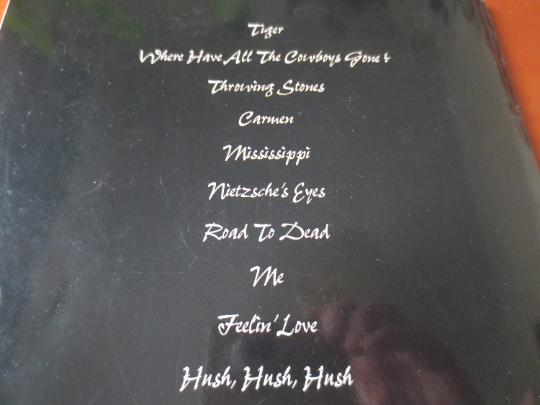 Tiger
Where Have All The Cowboys Gone?
Throwing Stones
Carmen
Mississippi
Nietzsche's Eyes
Road To Dead
Me
Feelin' Love
Hush, Hush, Hush